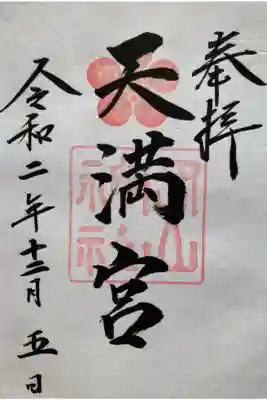 奉拝
天満宮
令和二年十二月五日